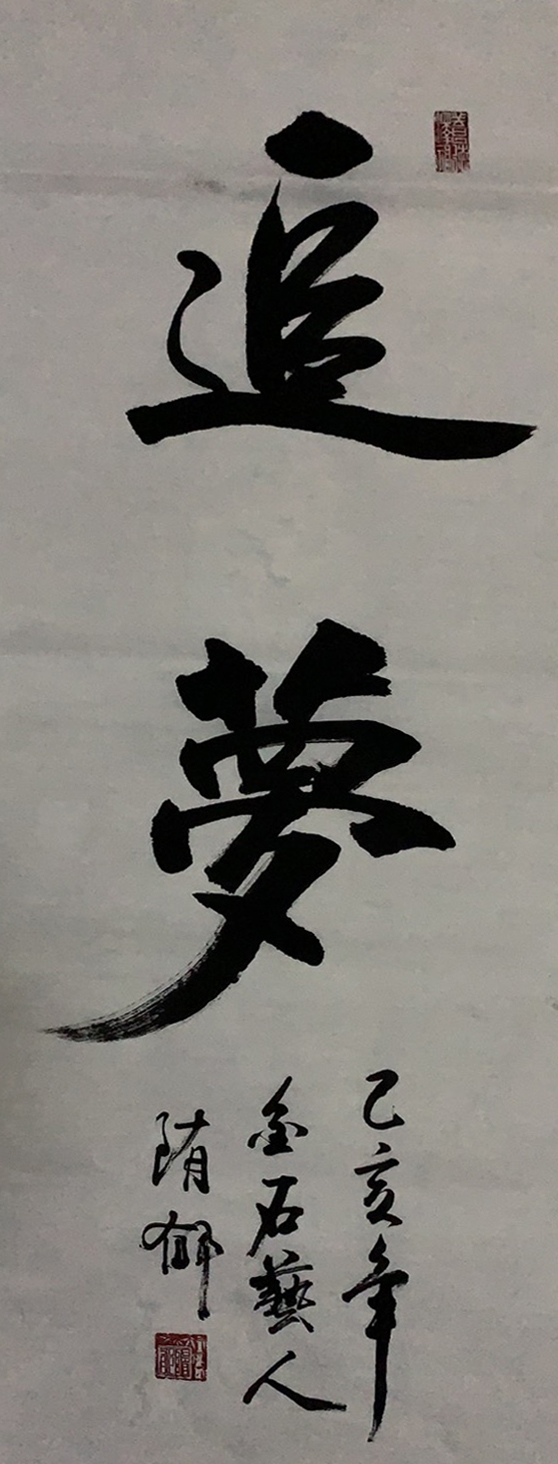 追夢
己亥年
金石藝人
隋